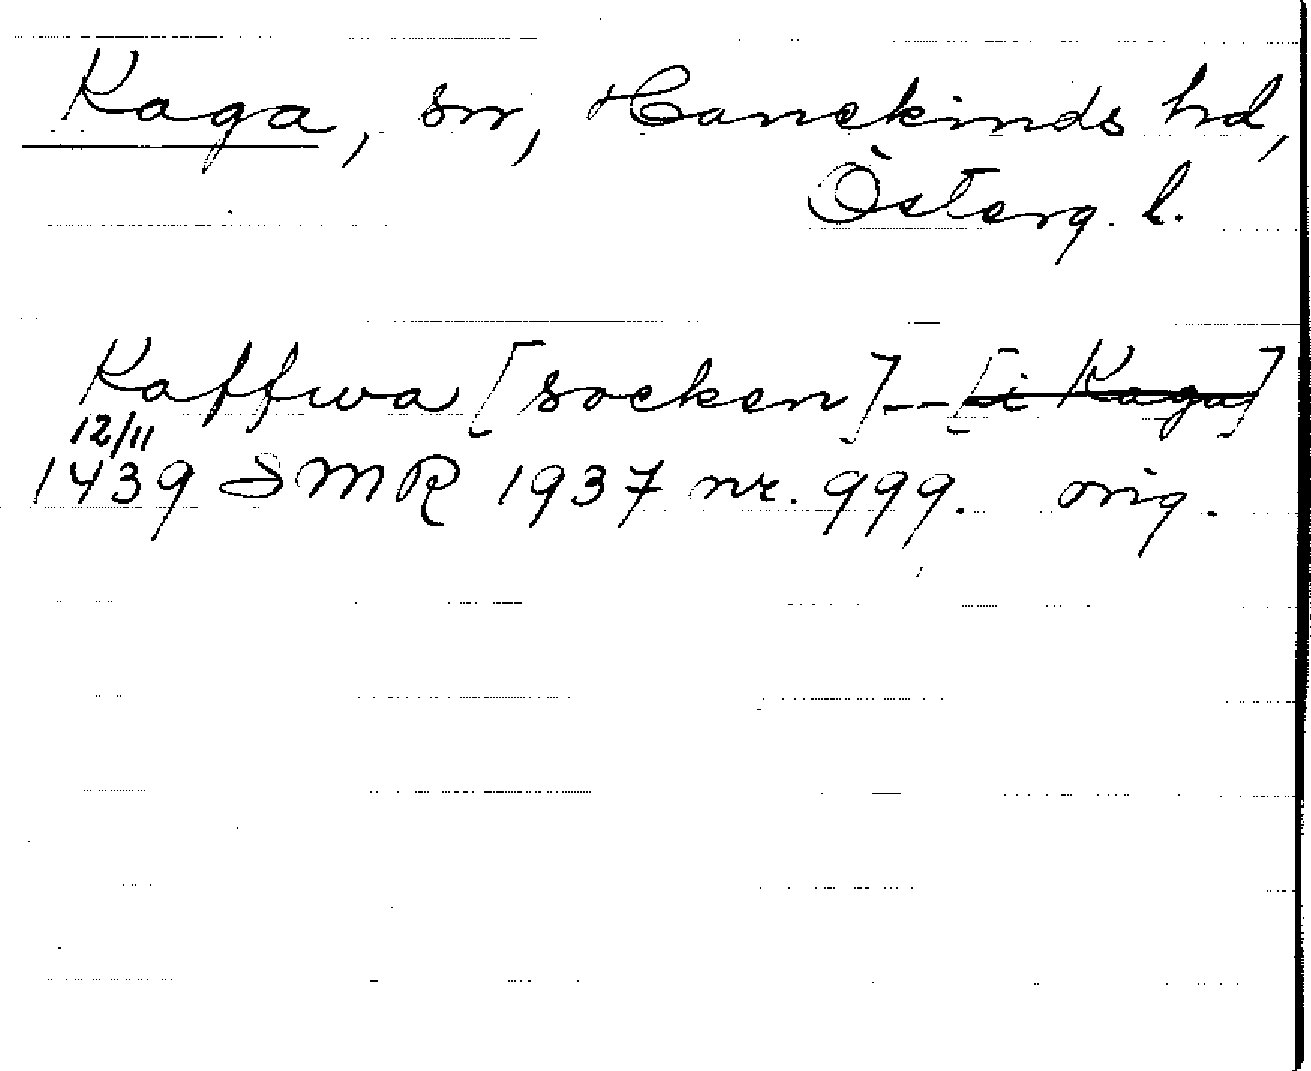 Kaga, sn, Hanekinds hd,
Österg. l.
Kaffwa [socken] — [i Kaga]
12/11
1439 SMR 1937 nr. 999. orig.